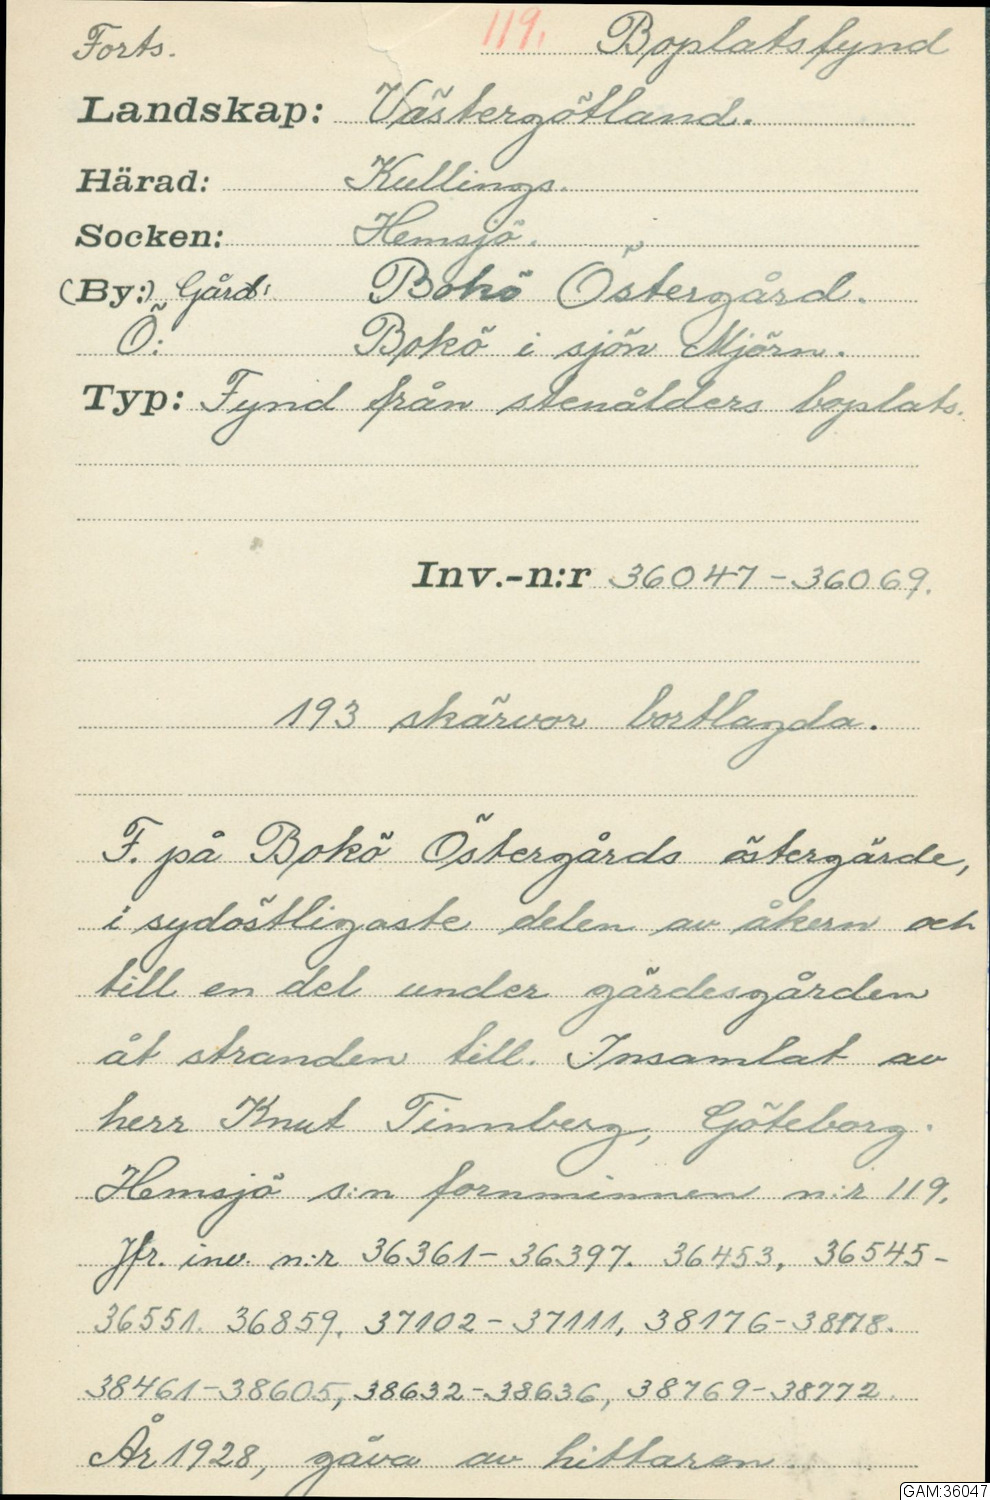 Forts. 119. Boplatsfynd
Landskap: Västergötland.
Härad: Kullings.
Socken: Hemsjö.
(By:) Gård: Bokö Östergård.
Ö: Bokö i sjön Mjörn.
Typ: Fynd från stenålders boplats.
Inv.-n:r 36047-36069.
193 skärvor bortlagda.
F. på Bokö Östergårds östergärde,
i sydöstligaste delen av åkern och
till en del under gärdesgården
åt stranden till. Insamlat av
herr Knut Tinnberg, Göteborg.
Hemsjö s:n fornminnen n:r 119.
Jfr. inv. n:r 36361-36397. 36453, 36545-
36551. 36859. 37102-37111, 38176-38178.
38461-38605, 38632-38636, 38769-38772.
År 1928, gåva av hittaren.
GAM:36047